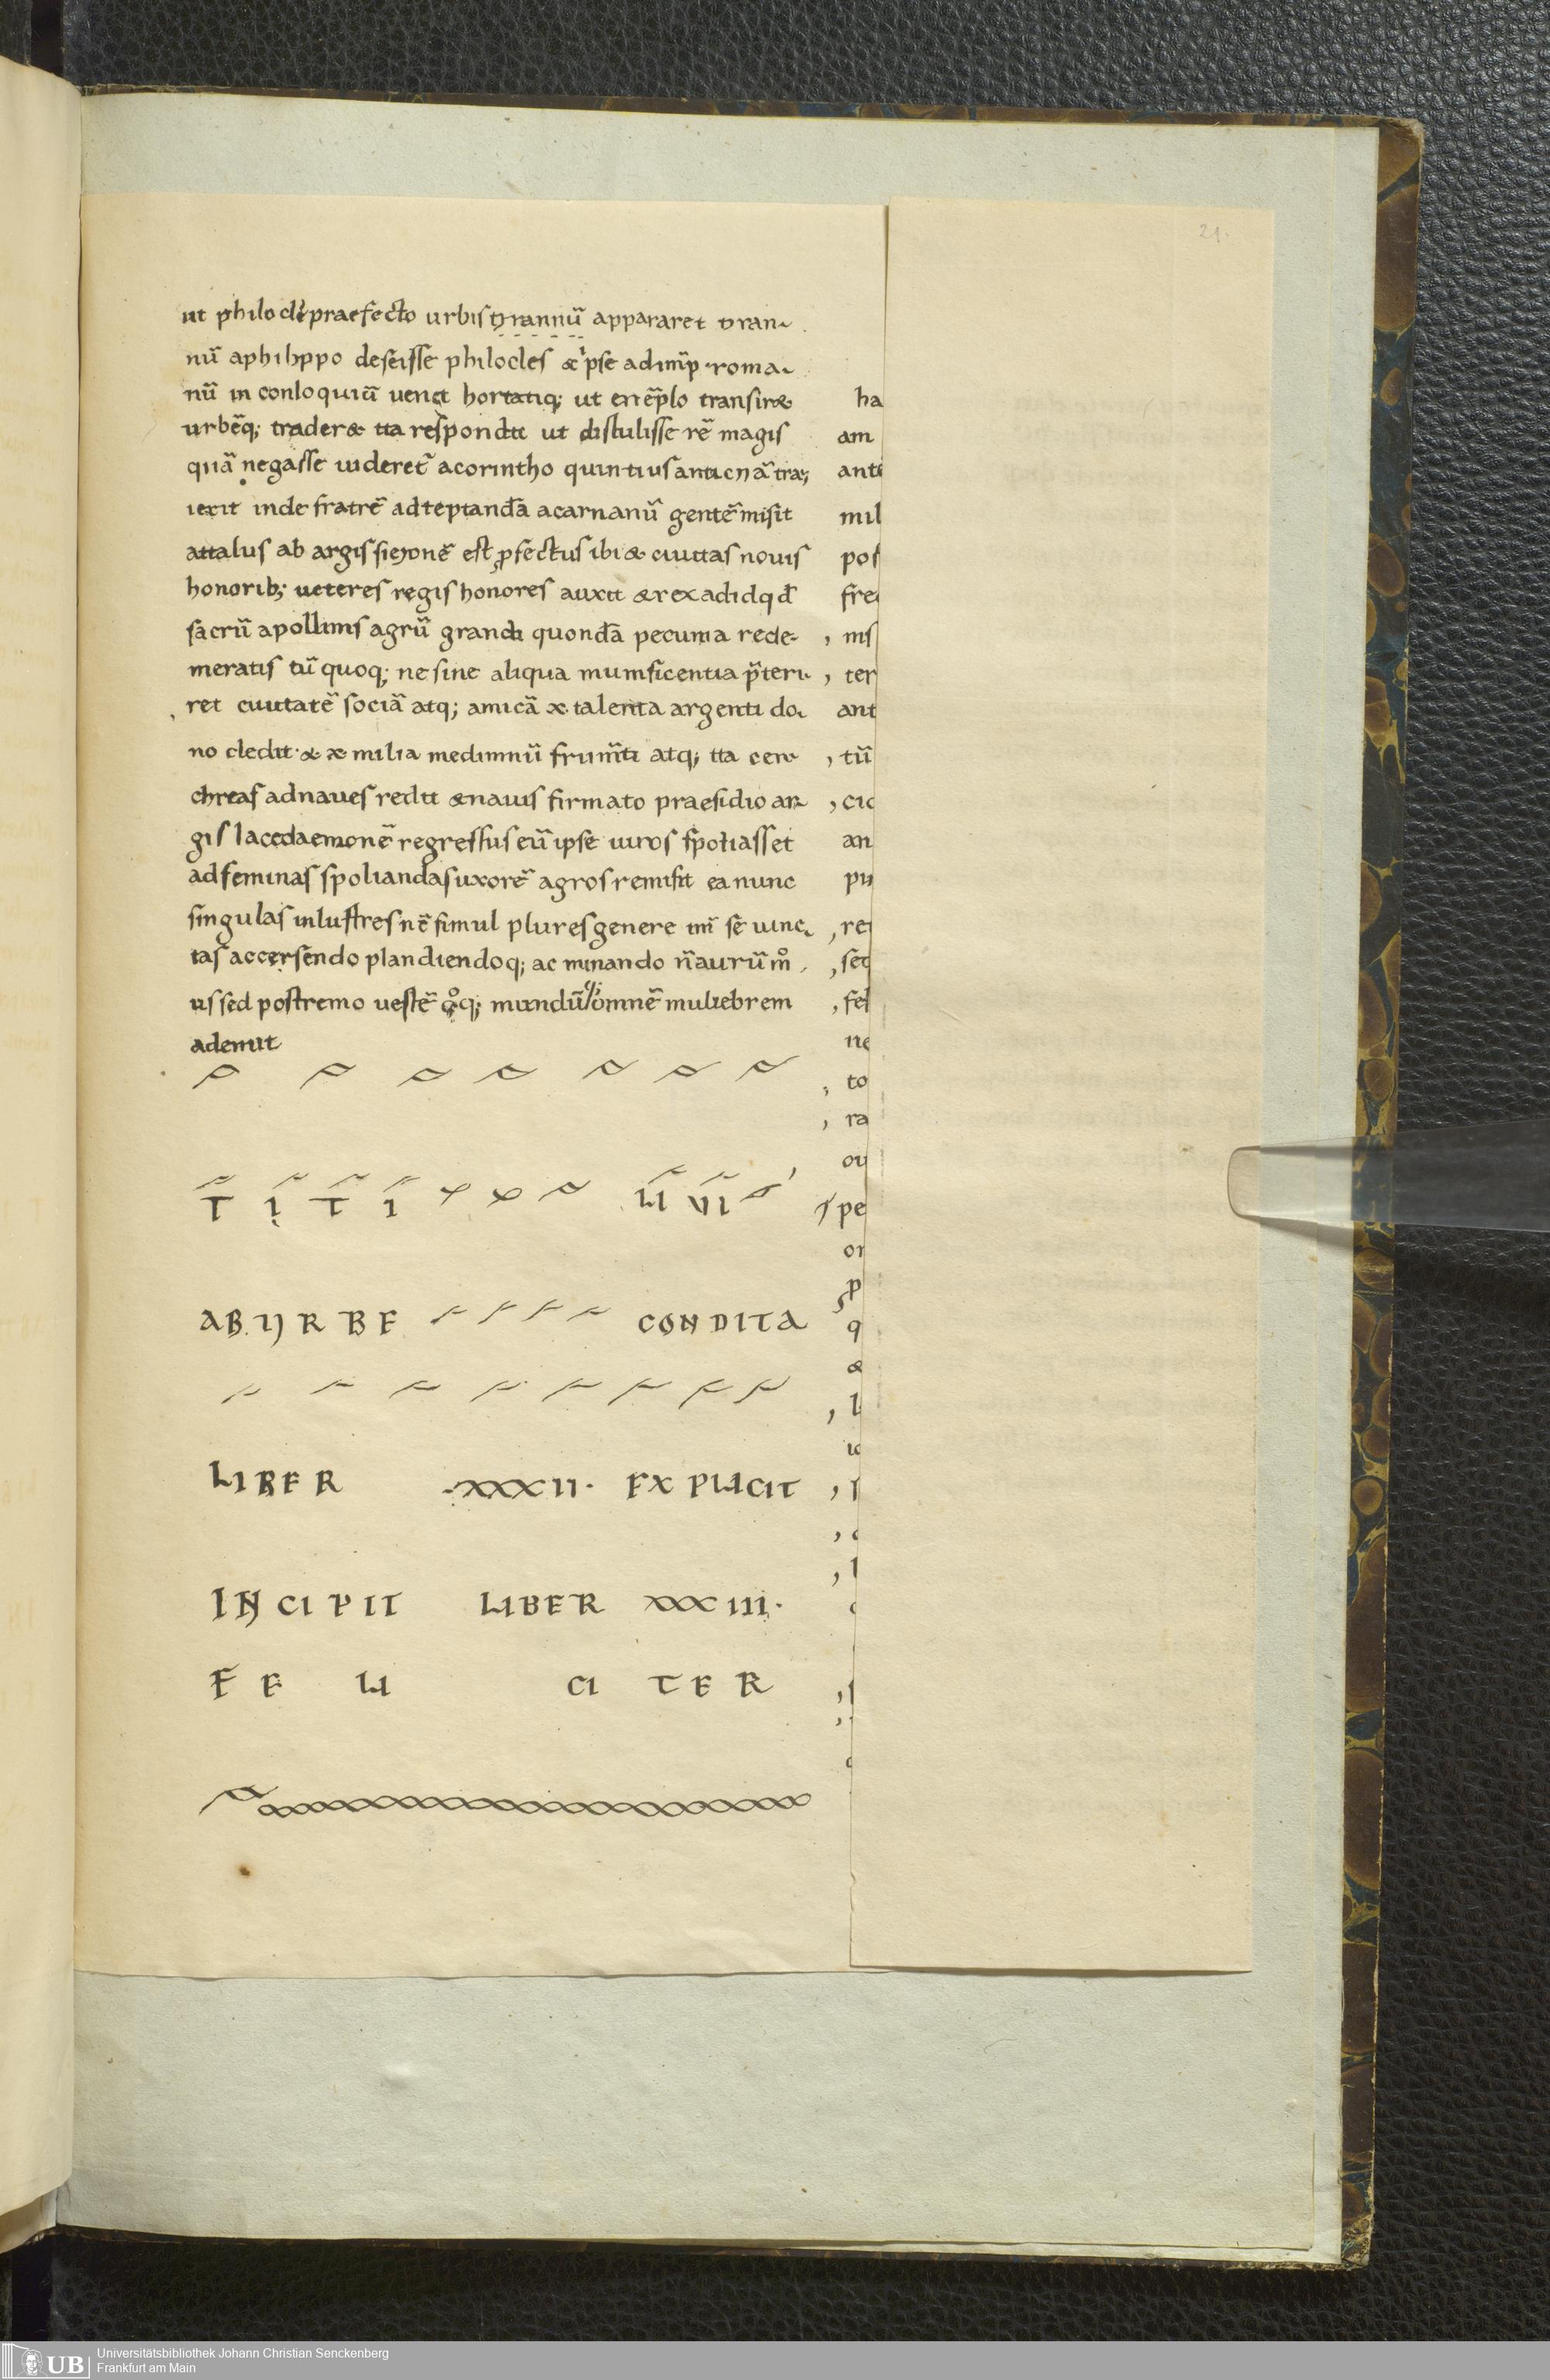 21.
ut philocli praefecto urbis tyrannū appararet tyran-
nū aphilippo desciisse philocles & ipse adimp̄ roma-
nū in conloquiū uenit hortatiq; ut exēplo transir&
urbēq; trader& ita respondit ut distulisse rē magis
quā negasse uideret̄ acorintho quintius anticyrā tra;
iecit inde fratrē adteptandā acarnanū gentē misit
attalus ab argis sicyonē est ꝓfectus ibi & ciuitas nouis
honorib; ueteres regis honores auxit & rex adid qd̄
sacrū apollinis agrū grandi quondā pecunia rede-
merat is tū quoq; ne sine aliqua munificentia p̄teri-
ret ciuitatē sociā atq; amicā x talenta argenti do-
no dedit· & x milia medimnū frum̄ti atq; ita cen-
chreas adnaues redit & nauis firmato praesidio ar-
gis lacedaemonē regressus cū ipse uiros spoliasset
ad feminas spoliandas uxorē agros remisit ea nunc
singulas inlustres nē simul plures genere int̄ se uinc-
tas accersendo plandiendoq; ac minando n̄ aurū mͦ
us sed postremo uestē qͦq; mundūq; omnē muliebrem
ademit
TITI LIVI
AB URBE CONDITA
LIBER ·XXXII· EXPLICIT
INCIPIT LIBER XXXIII·
FE LI CI TER
ha
am
ante
mil
pos
fre
nis
ter
ant
tū
cic
an
pu
re
set
fel
ne
to
ra
ou
pe
or
p
q
&
l
Universitätsbibliothek Johann Christian Senckenberg
Frankfurt am Main
UB